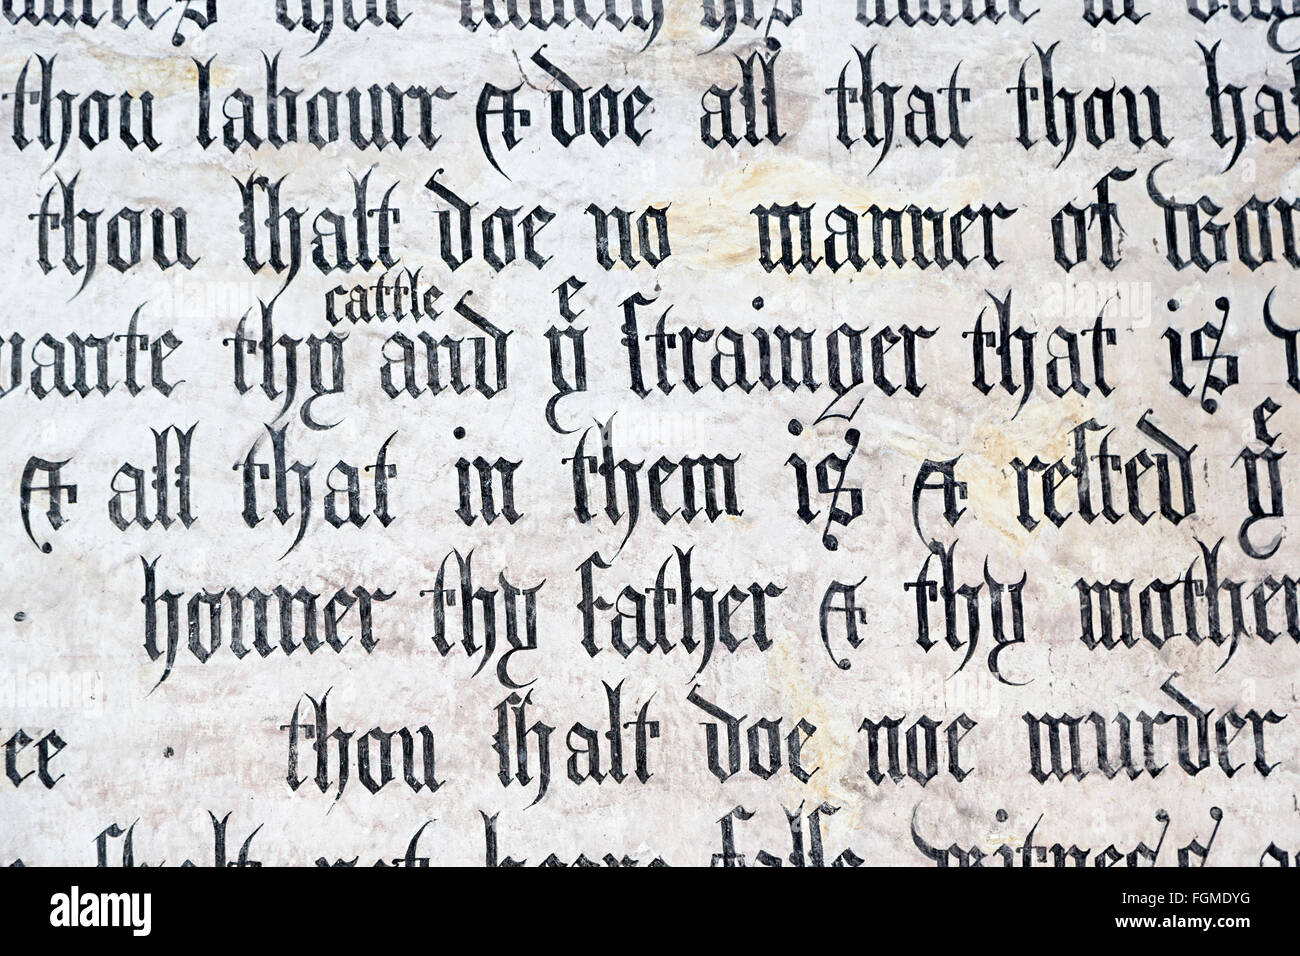 thou labourr & doe all that thou ha
thou shalt doe no manner of wor
vante thy cattle and yᵉ strainger that is
& all that in them is & rested yᵉ
honner thy father & thy mother
ree thou shalt doe noe murder
shalt not beare false witness a
alamy stock photo
FGMDYG
www.alamy.com